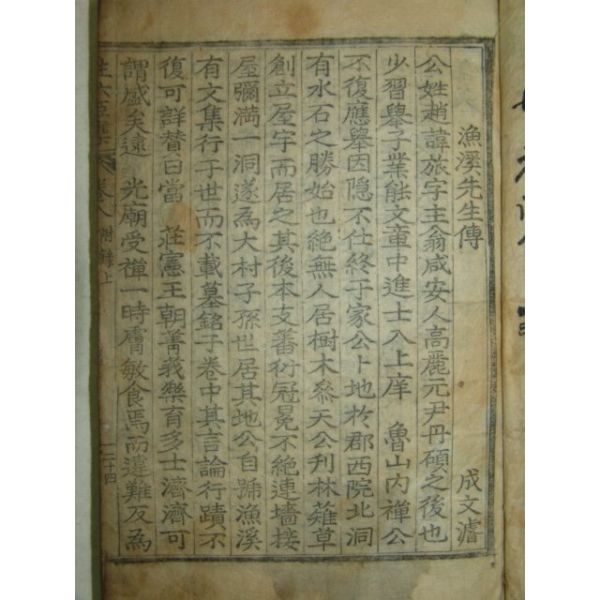 漁溪先生傳 成文濬
公姓趙諱旅字主翁咸安人高麗元尹丹碩之後也
少習擧子業能文童中進士入上庠 魯山內禪公
不復應擧因隱不仕終于家公卜地於郡西院北洞
有水石之勝始也絶無人居樹木叅天公刋林薙草
創立屋宇而居之其後本支蕃衍冠冕不絶連墻接
屋彌滿一洞遂爲大村子孫世居其地公自號漁溪
有文集行于世而不載墓銘于卷中其言論行蹟不
復可詳替曰當 莊憲王朝菁義樂育多士濟濟可
謂盛矣逮 光廟受禪一時膚敏食焉而違難反爲
生六臣 卷八 附錄上 二十四